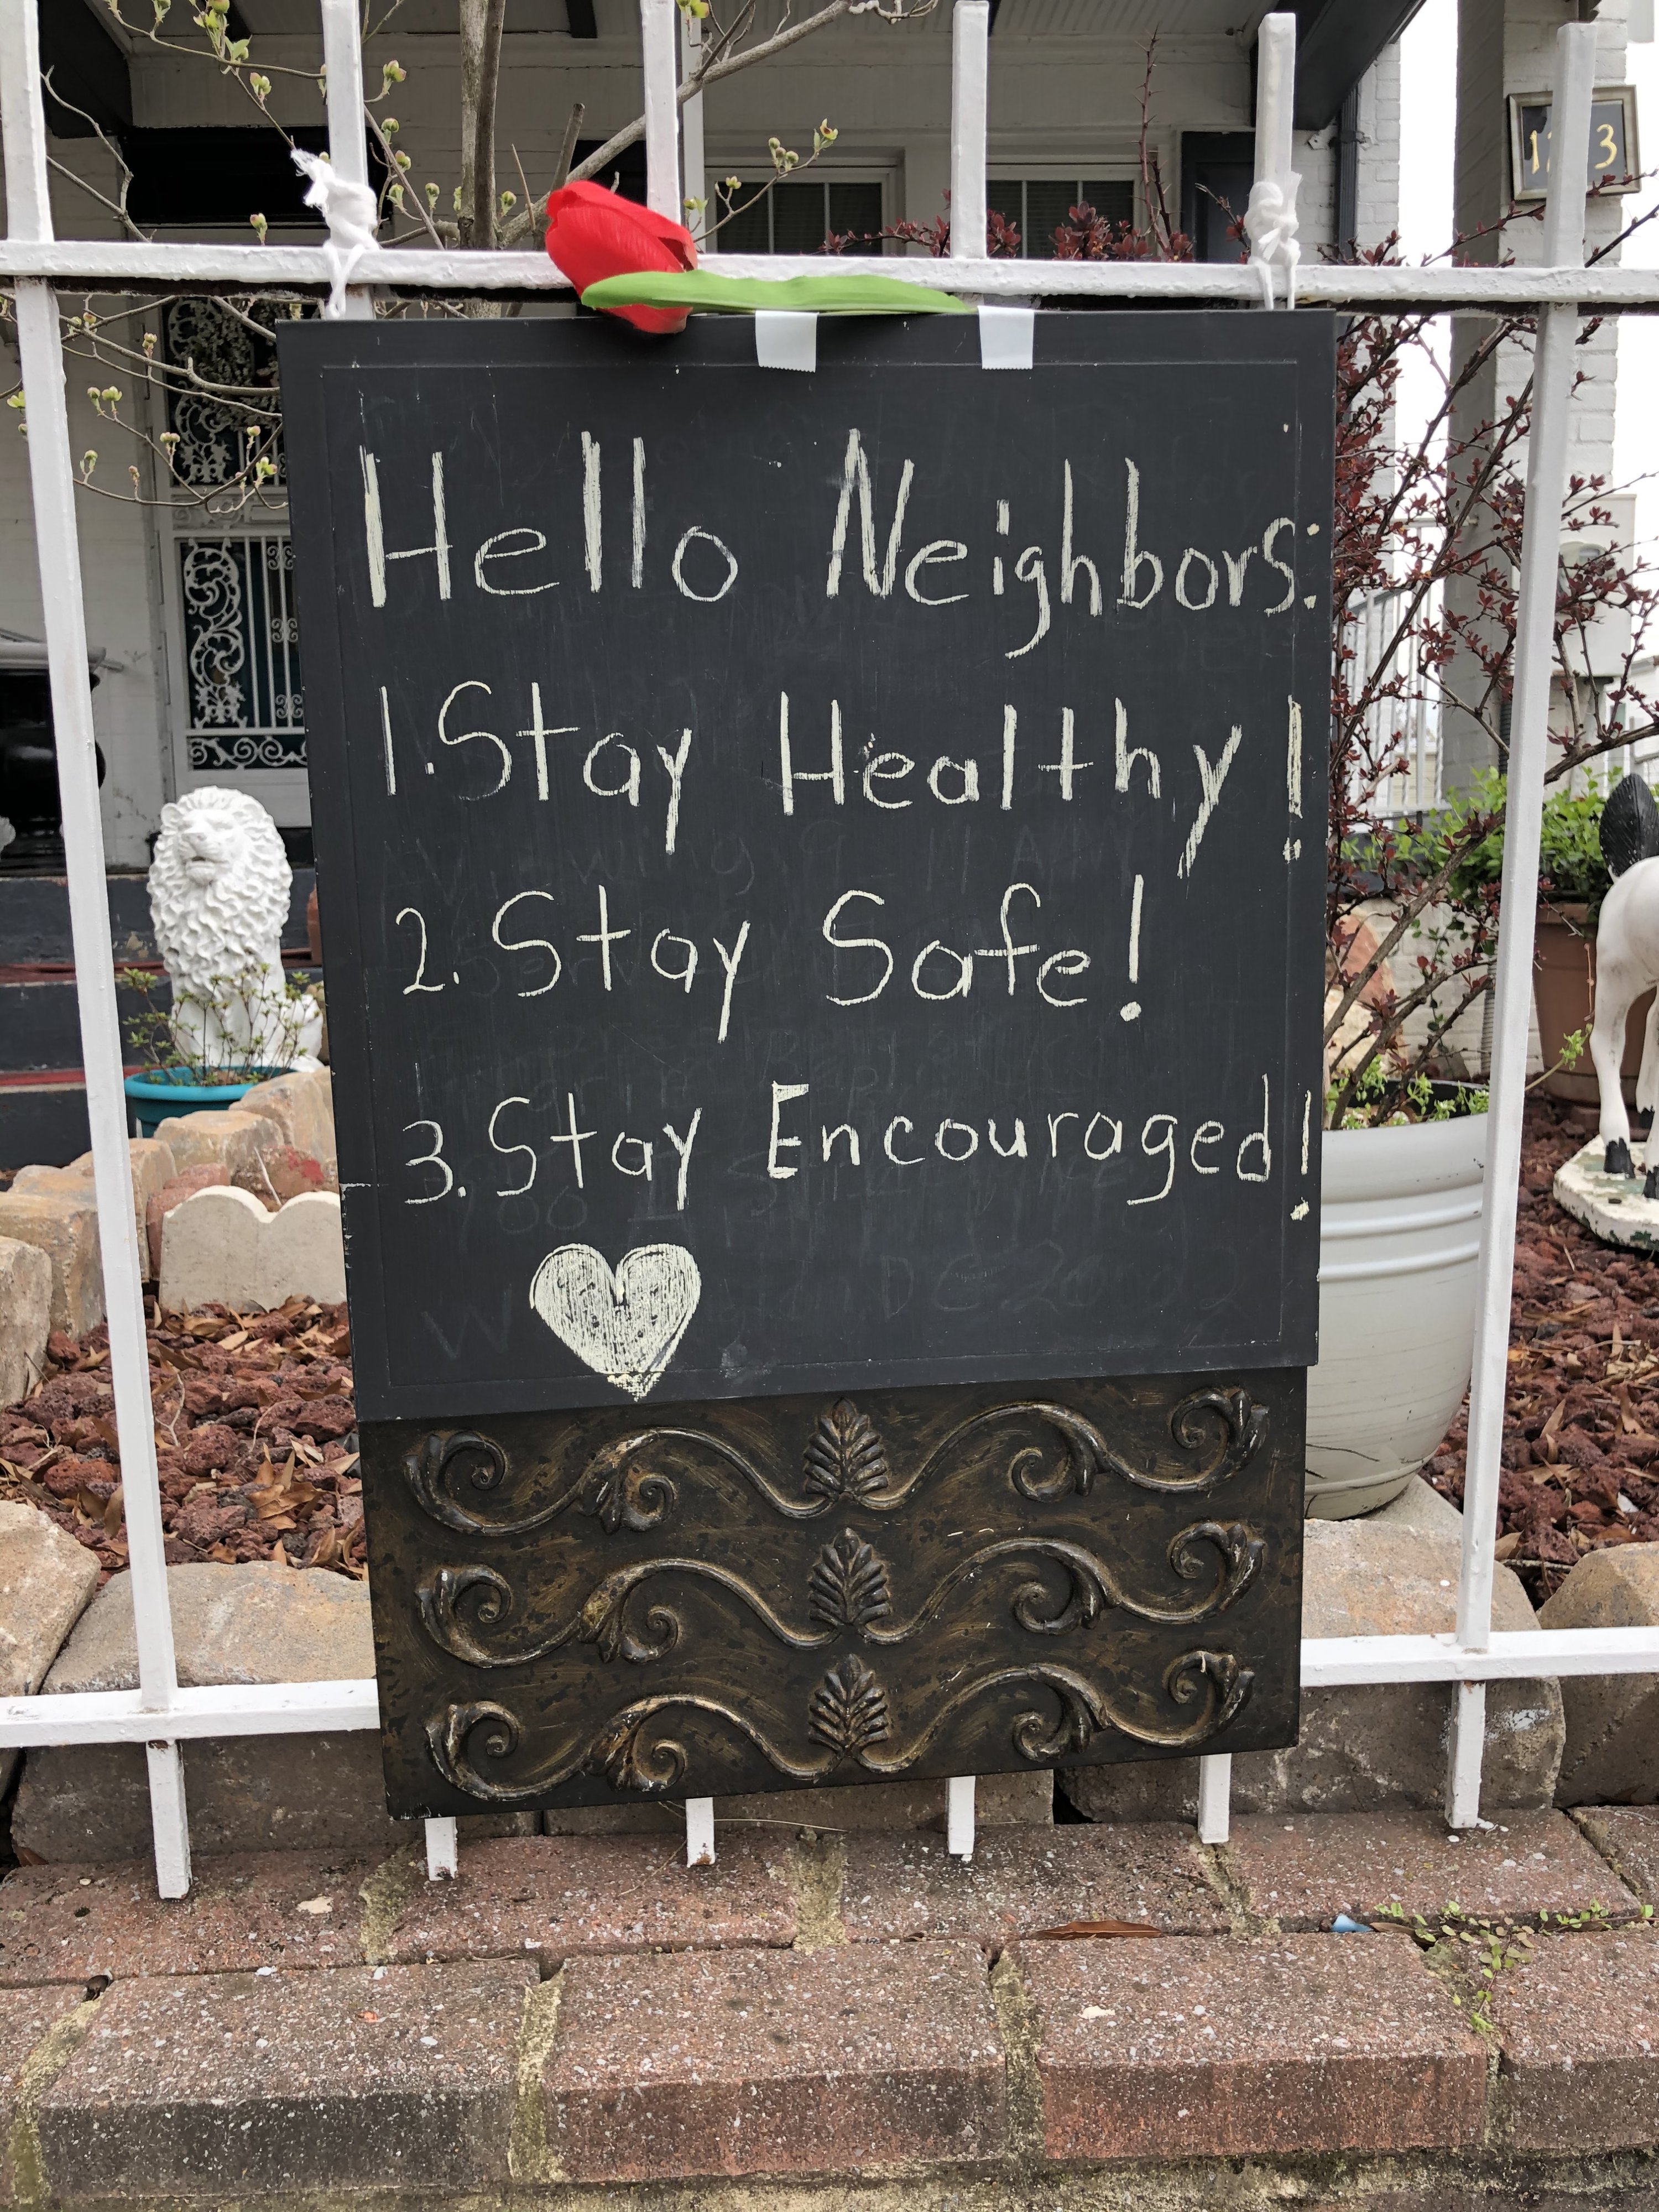 Hello Neighbors:
1. Stay Healthy!
2. Stay Safe!
3. Stay Encouraged!